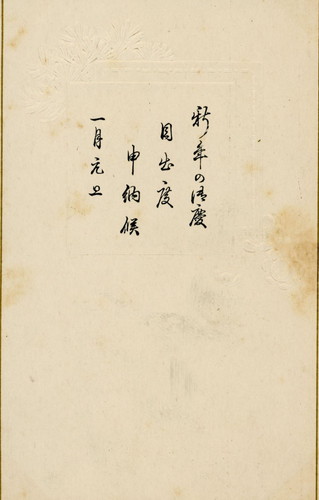 新年の御慶
目出度
申納候
一月元旦